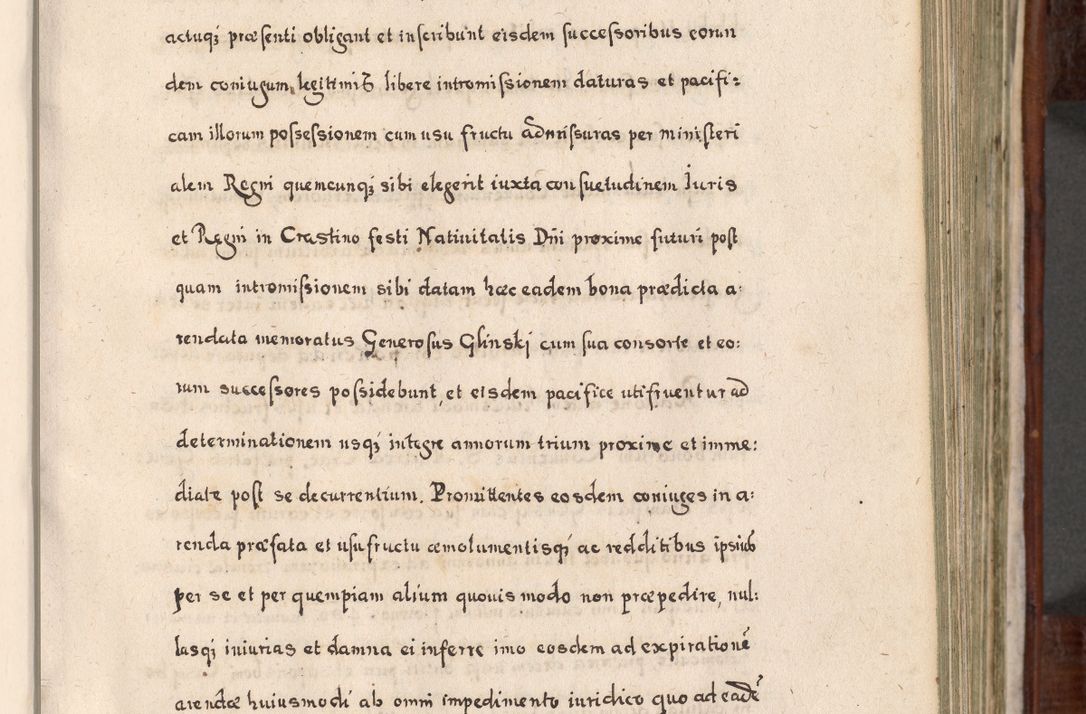 actuqȝ præsenti obligant et inscribunt eisdem successoribus eorun
dem coniugum, legitimis libere intromissionem daturas et pacifi:
cam illorum possessionem cum usu fructu admissuras per ministeri
alem Regni quemcunqȝ sibi elegerit iuxta consuetudinem Iuris
et Regni in Crastino festi Natiuitatis Dñi proxime futuri post
quam intromissionem sibi datam hæc eadem bona prædicta a:
rendata memoratus Generosus Glinski cum sua consorte et eo:
rum successores possidebunt, et eisdem pacifice utifruentur ad
determinationem usqȝ integre annorum trium proxime et imme:
diate post se decurrentium. Promittentes eosdem coniuges in a:
renda præfata et usufructu æmolumentisqȝ ac redditibus ipsius
per se et per quempiam alium quouis modo non præpedire, nul:
lasqȝ iniurias et damna ei inferre imo eosdem ad expirationē
arendæ huiusmodi ab omni impedimento iuridico quo ad eadē